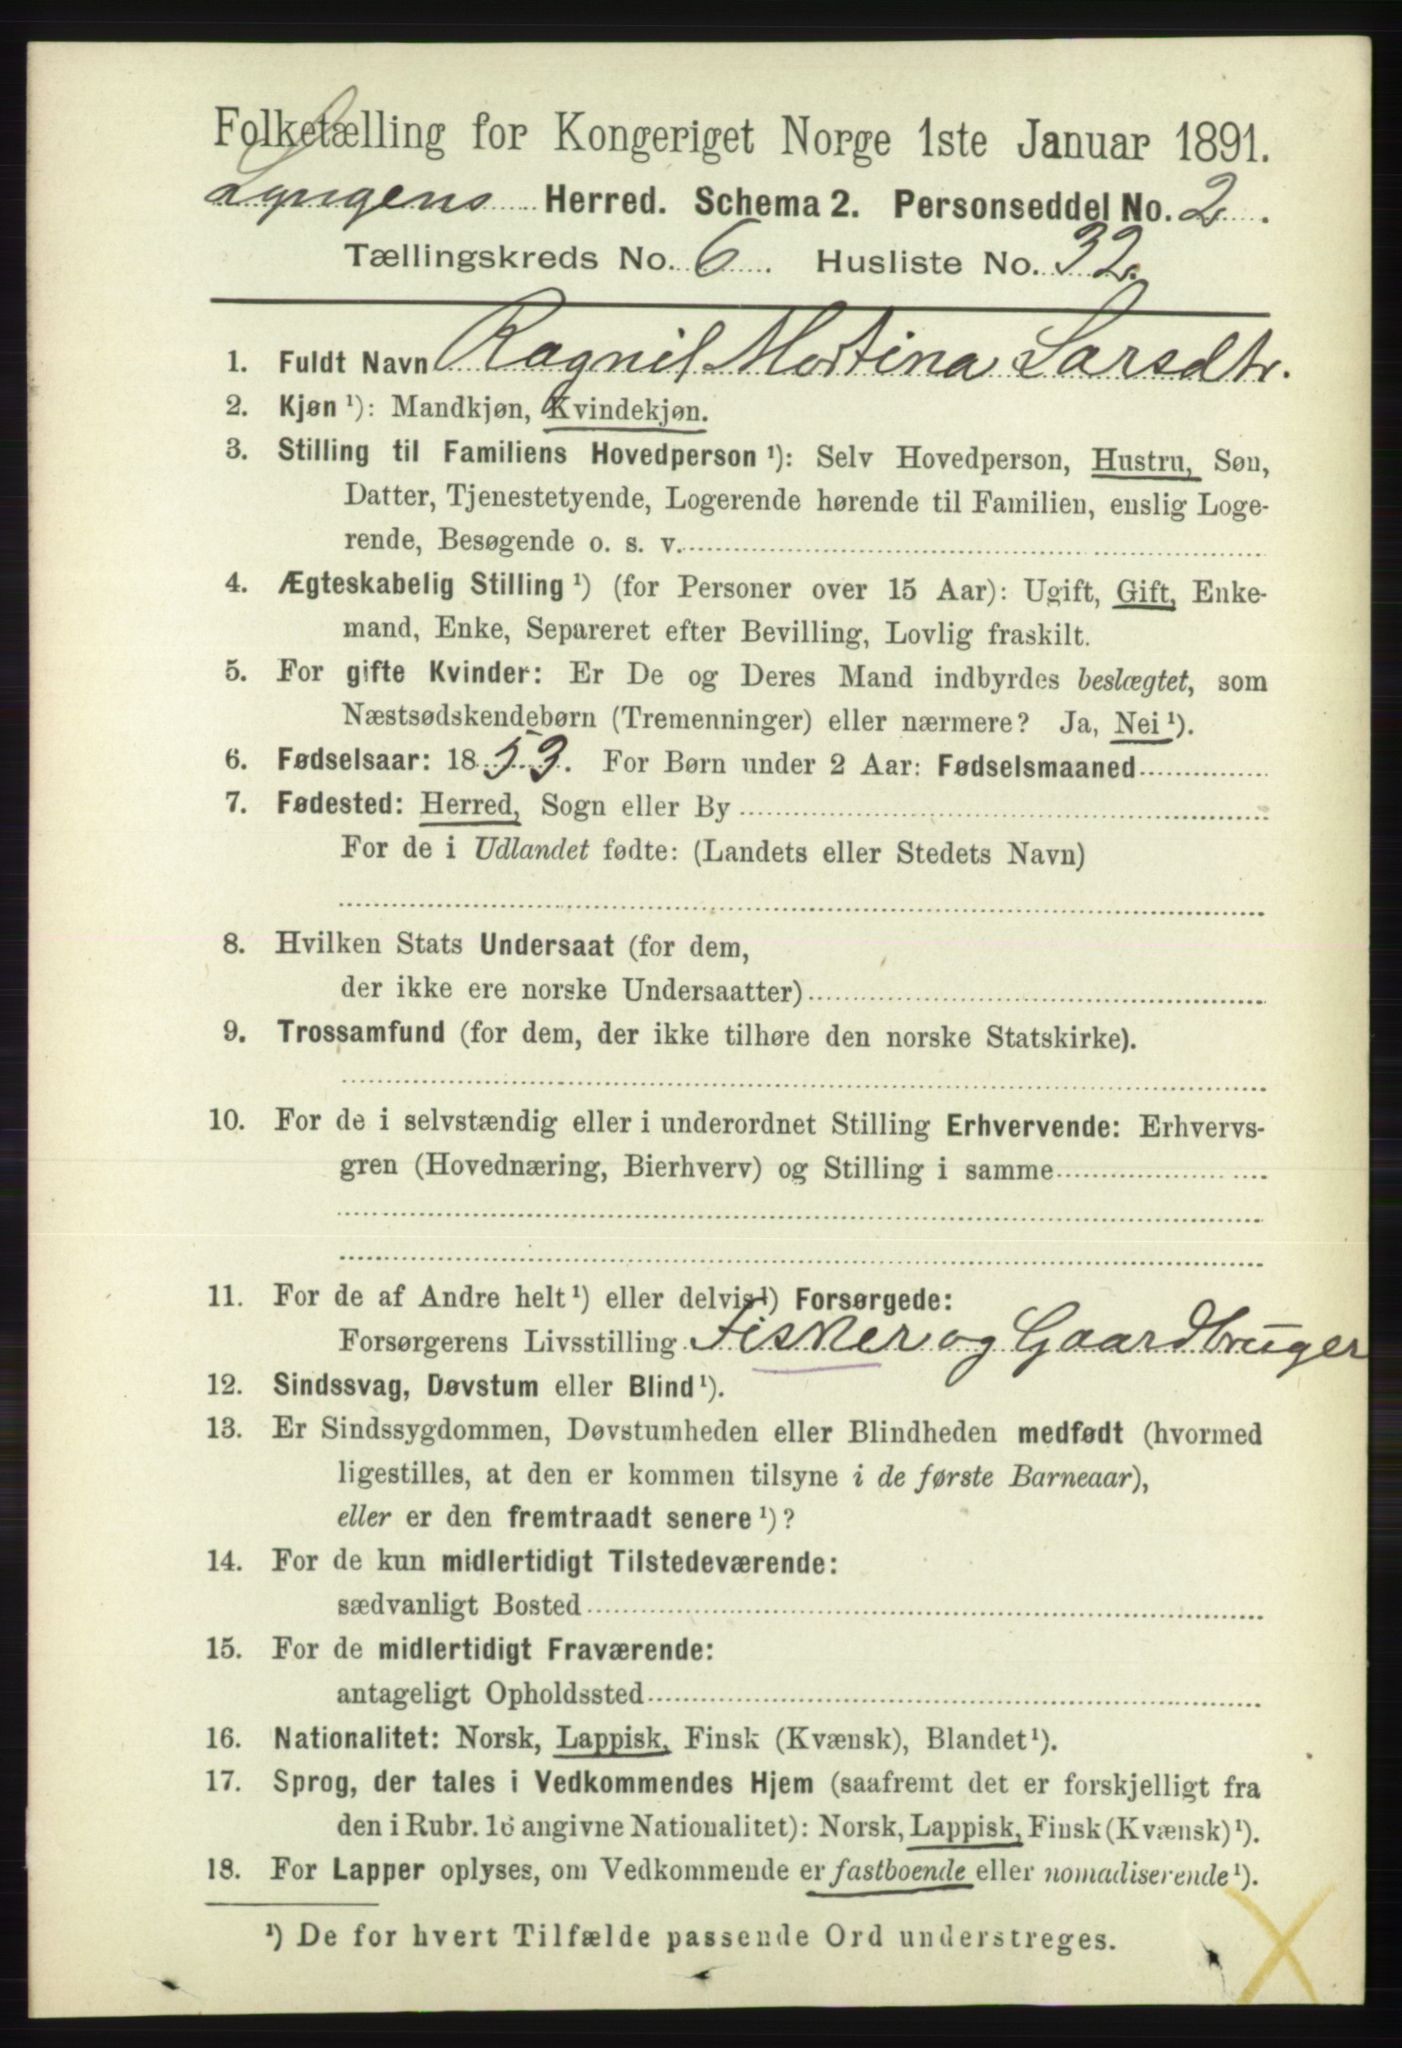 Folketælling for Kongeriget Norge 1ste Januar 1891.
Lyngens Herred. Schema 2. Personseddel No. 2.
Tællingskreds No. 6. Husliste No. 32.
1. Fuldt Navn Ragnil Martina Larsdtr.
2. Kjøn ¹): Mandkjøn, Kvindekjøn.
3. Stilling til Familiens Hovedperson ¹): Selv Hovedperson, Hustru, Søn,
Datter, Tjenestetyende, Logerende hørende til Familien, enslig Loge-
rende, Besøgende o. s. v.
4. Ægteskabelig Stilling ¹) (for Personer over 15 Aar): Ugift, Gift, Enke-
mand, Enke, Separeret efter Bevilling, Lovlig fraskilt.
5. For gifte Kvinder: Er De og Deres Mand indbyrdes beslægtet, som
Næstsødskendebørn (Tremenninger) eller nærmere? Ja, Nei ¹).
6. Fødselsaar: 1853. For Børn under 2 Aar: Fødselsmaaned
7. Fødested: Herred, Sogn eller By
For de i Udlandet fødte: (Landets eller Stedets Navn)
8. Hvilken Stats Undersaat (for dem,
der ikke ere norske Undersaatter)
9. Trossamfund (for dem, der ikke tilhøre den norske Statskirke).
10. For de i selvstændig eller i underordnet Stilling Erhvervende: Erhvervs-
gren (Hovednæring, Bierhverv) og Stilling i samme
11. For de af Andre helt ¹) eller delvis ¹) Forsørgede:
Forsørgerens Livsstilling Fisker og Gaardbruger
12. Sindssvag, Døvstum eller Blind ¹).
13. Er Sindssygdommen, Døvstumheden eller Blindheden medfødt (hvormed
ligestilles, at den er kommen tilsyne i de første Barneaar),
eller er den fremtraadt senere ¹)?
14. For de kun midlertidigt Tilstedeværende:
sædvanligt Bosted
15. For de midlertidigt Fraværende:
antageligt Opholdssted
16. Nationalitet: Norsk, Lappisk, Finsk (Kvænsk), Blandet ¹).
17. Sprog, der tales i Vedkommendes Hjem (saafremt det er forskjelligt fra
den i Rubr. 16 angivne Nationalitet): Norsk, Lappisk, Finsk (Kvænsk) ¹).
18. For Lapper oplyses, om Vedkommende er fastboende eller nomadiserende ¹).
¹) De for hvert Tilfælde passende Ord understreges.